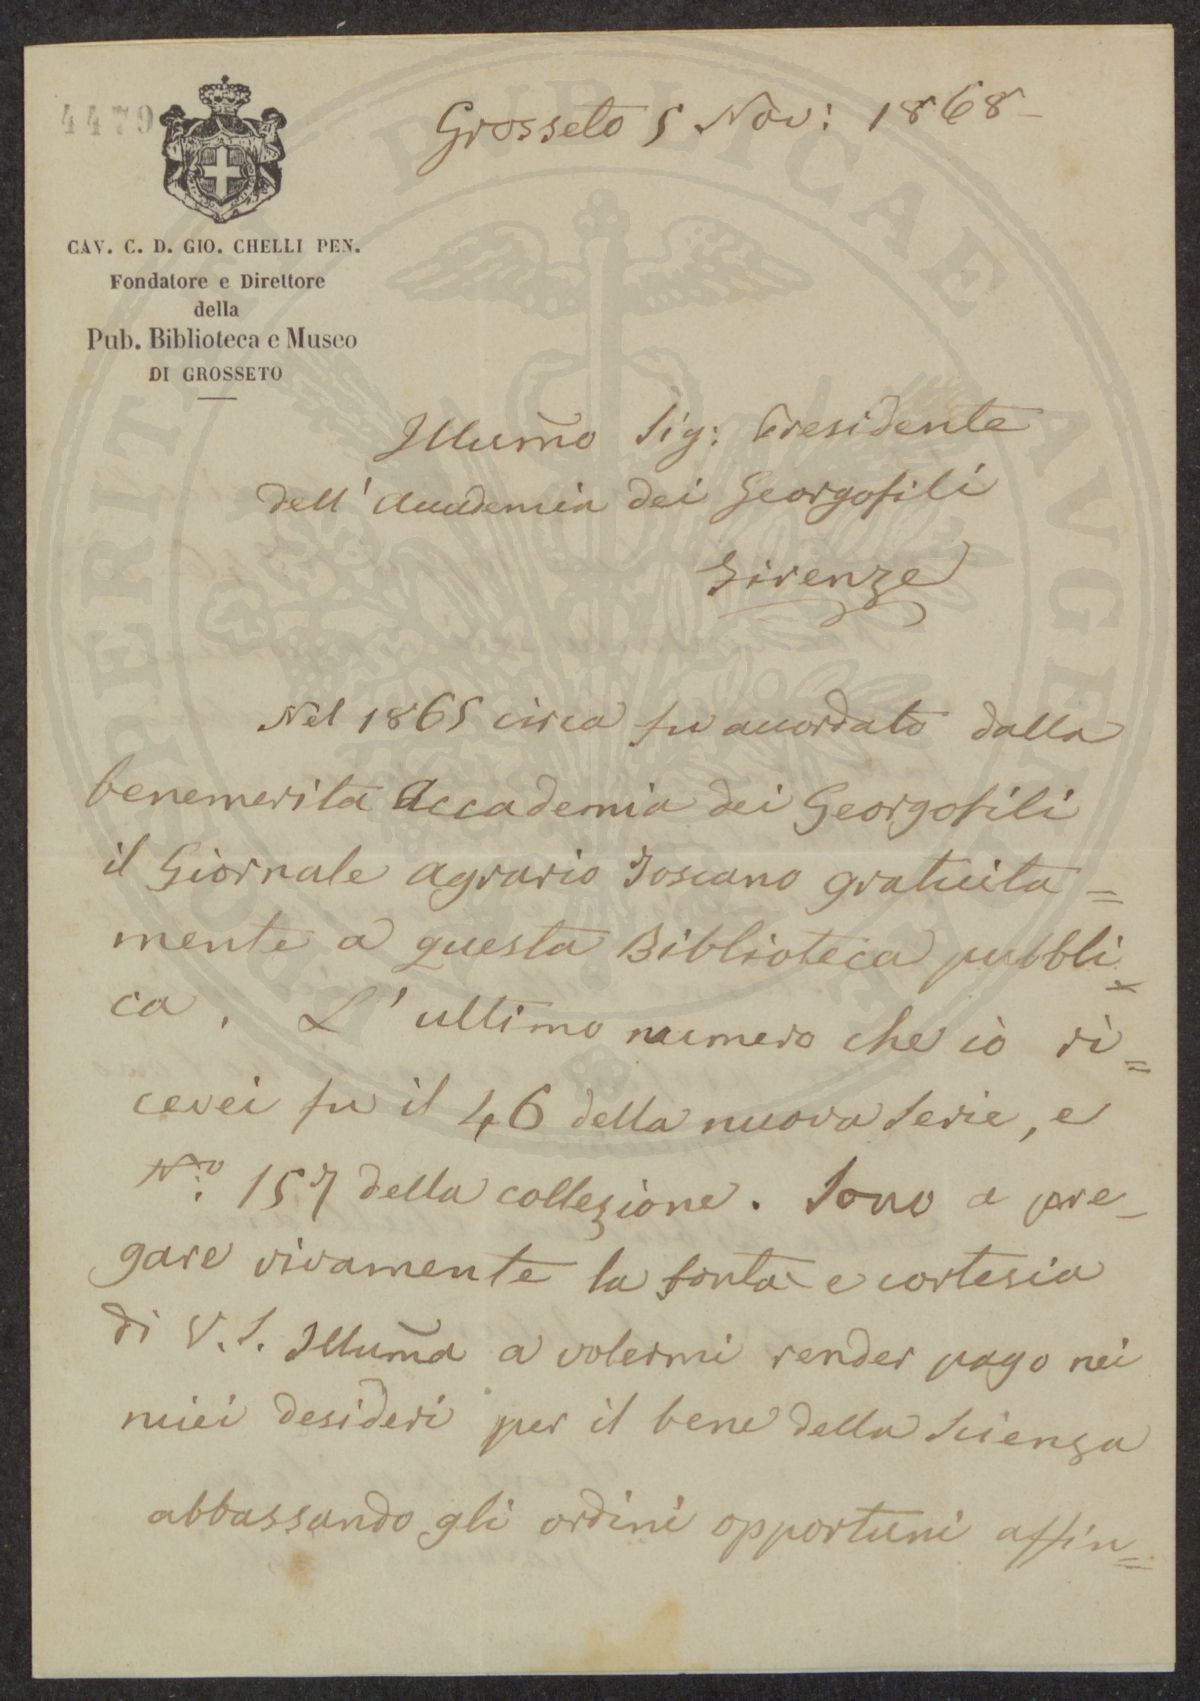 4479
Grosseto 5 Nov: 1868
CAV. C. D. GIO. CHELLI PEN.
Fondatore e Direttore
della
Pub. Biblioteca e Museo
DI GROSSETO
Illum̃o Sig: Presidente
dell' Accademia dei Georgofili
Firenze
Nel 1865 circa fu accordato dalla
benemerita Accademia dei Georgofili
il Giornale agrario Toscano gratuita=
mente a questa Biblioteca pubbli=
ca. L'ultimo numero che io ri=
cevei fu il 46 della nuova Serie, e
N:o 157 della collezione. Sono a pre-
gare vivamente la bontà e cortesia
di V. S. Illum̃a a volermi render pago nei
miei desideri per il bene della Scienza
abbassando gli ordini opportuni affin=
PUBLICAE
AUGE
PERIT